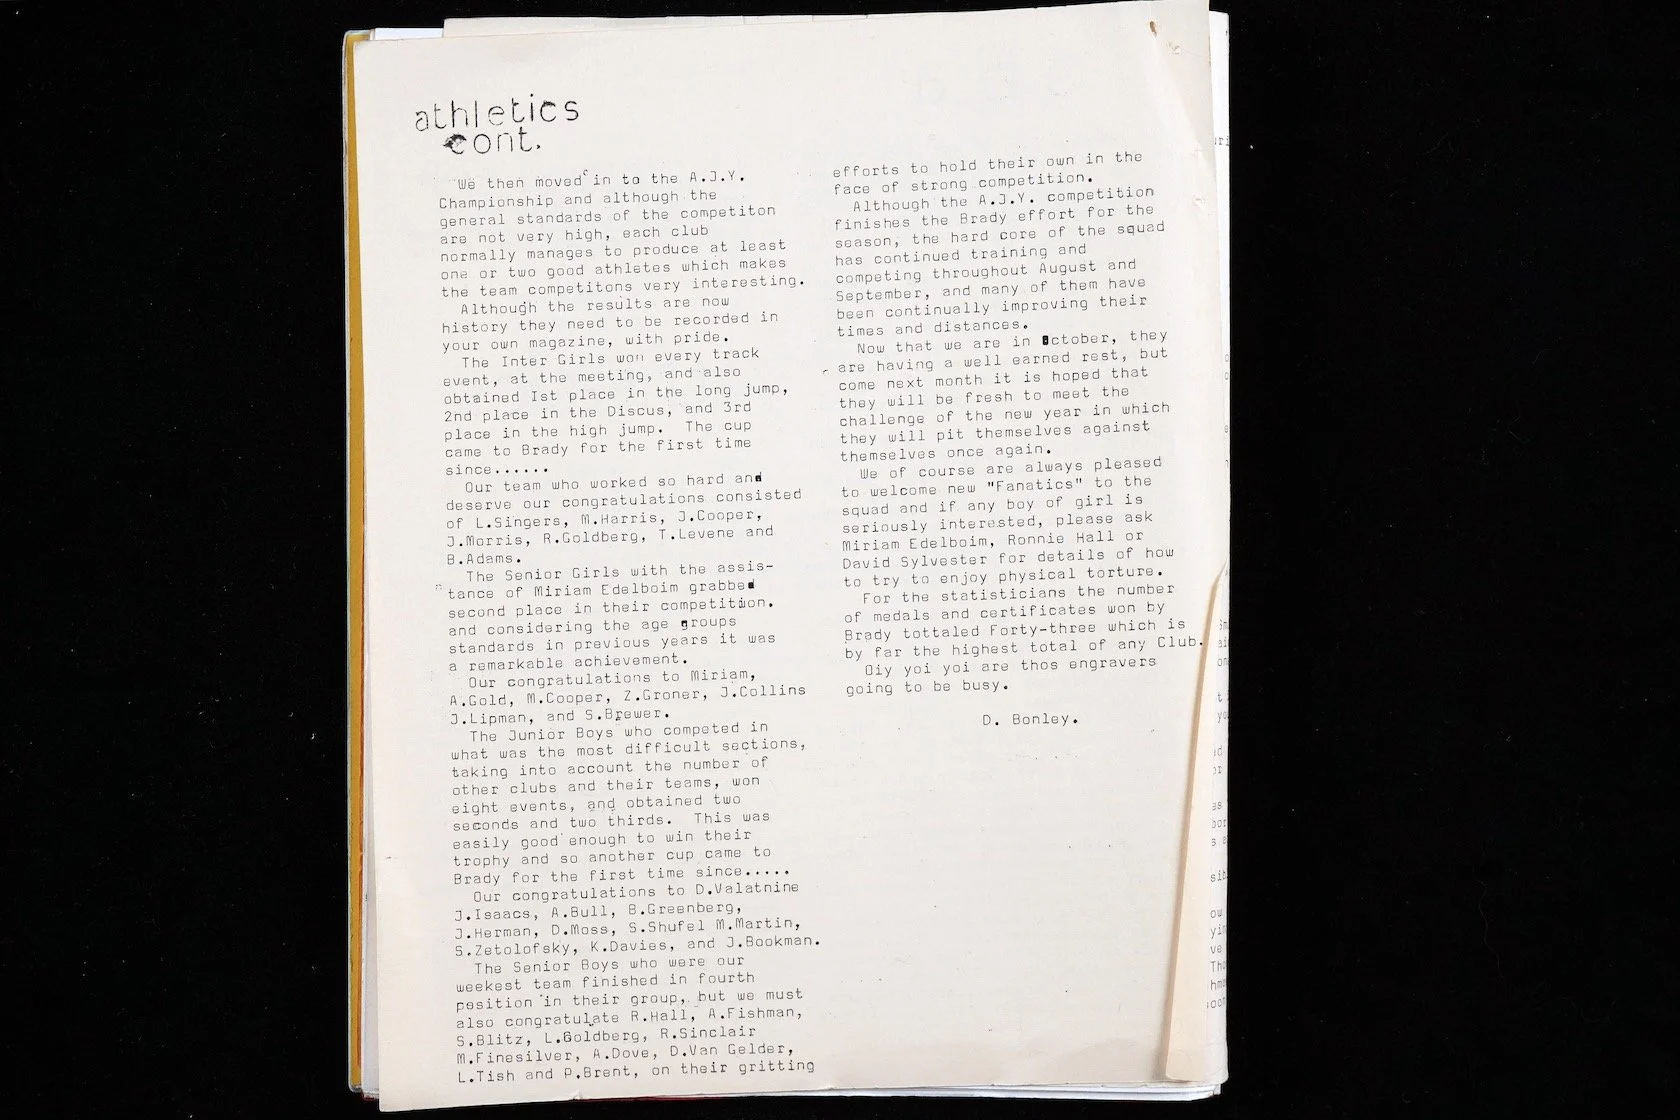 athletics
cont.
We then moved in to the A.J.Y.
Championship and although the
general standards of the competiton
are not very high, each club
normally manages to produce at least
one or two good athletes which makes
the team competitons very interesting.
Although the results are now
history they need to be recorded in
your own magazine, with pride.
The Inter Girls won every track
event, at the meeting, and also
obtained Ist place in the long jump,
2nd place in the Discus, and 3rd
place in the high jump. The cup
came to Brady for the first time
since......
Our team who worked so hard and
deserve our congratulations consisted
of L.Singers, M.Harris, J.Cooper,
J.Morris, R.Goldberg, T.Levene and
B.Adams.
The Senior Girls with the assis-
tance of Miriam Edelboim grabbed
second place in their competition.
and considering the age groups
standards in previous years it was
a remarkable achievement.
Our congratulations to Miriam,
A.Gold, M.Cooper, Z.Groner, J.Collins
J.Lipman, and S.Brewer.
The Junior Boys who competed in
what was the most difficult sections,
taking into account the number of
other clubs and their teams, won
eight events, and obtained two
seconds and two thirds. This was
easily good enough to win their
trophy and so another cup came to
Brady for the first time since.....
Our congratulations to D.Valatnine
J.Isaacs, A.Bull, B.Greenberg,
J.Herman, D.Moss, S.Shufel M.Martin,
S.Zetolofsky, K.Davies, and J.Bookman.
The Senior Boys who were our
weekest team finished in fourth
position in their group, but we must
also congratulate R.Hall, A.Fishman,
S.Blitz, L.Goldberg, R.Sinclair
M.Finesilver, A.Dove, D.Van Gelder,
L.Tish and P.Brent, on their gritting
efforts to hold their own in the
face of strong competition.
Although the A.J.Y. competition
finishes the Brady effort for the
season, the hard core of the squad
has continued training and
competing throughout August and
September, and many of them have
been continually improving their
times and distances.
Now that we are in October, they
are having a well earned rest, but
come next month it is hoped that
they will be fresh to meet the
challenge of the new year in which
they will pit themselves against
themselves once again.
We of course are always pleased
to welcome new "Fanatics" to the
squad and if any boy of girl is
seriously interested, please ask
Miriam Edelboim, Ronnie Hall or
David Sylvester for details of how
to try to enjoy physical torture.
For the statisticians the number
of medals and certificates won by
Brady tottaled Forty-three which is
by far the highest total of any Club.
Oiy yoi yoi are thos engravers
going to be busy.
D. Bonley.